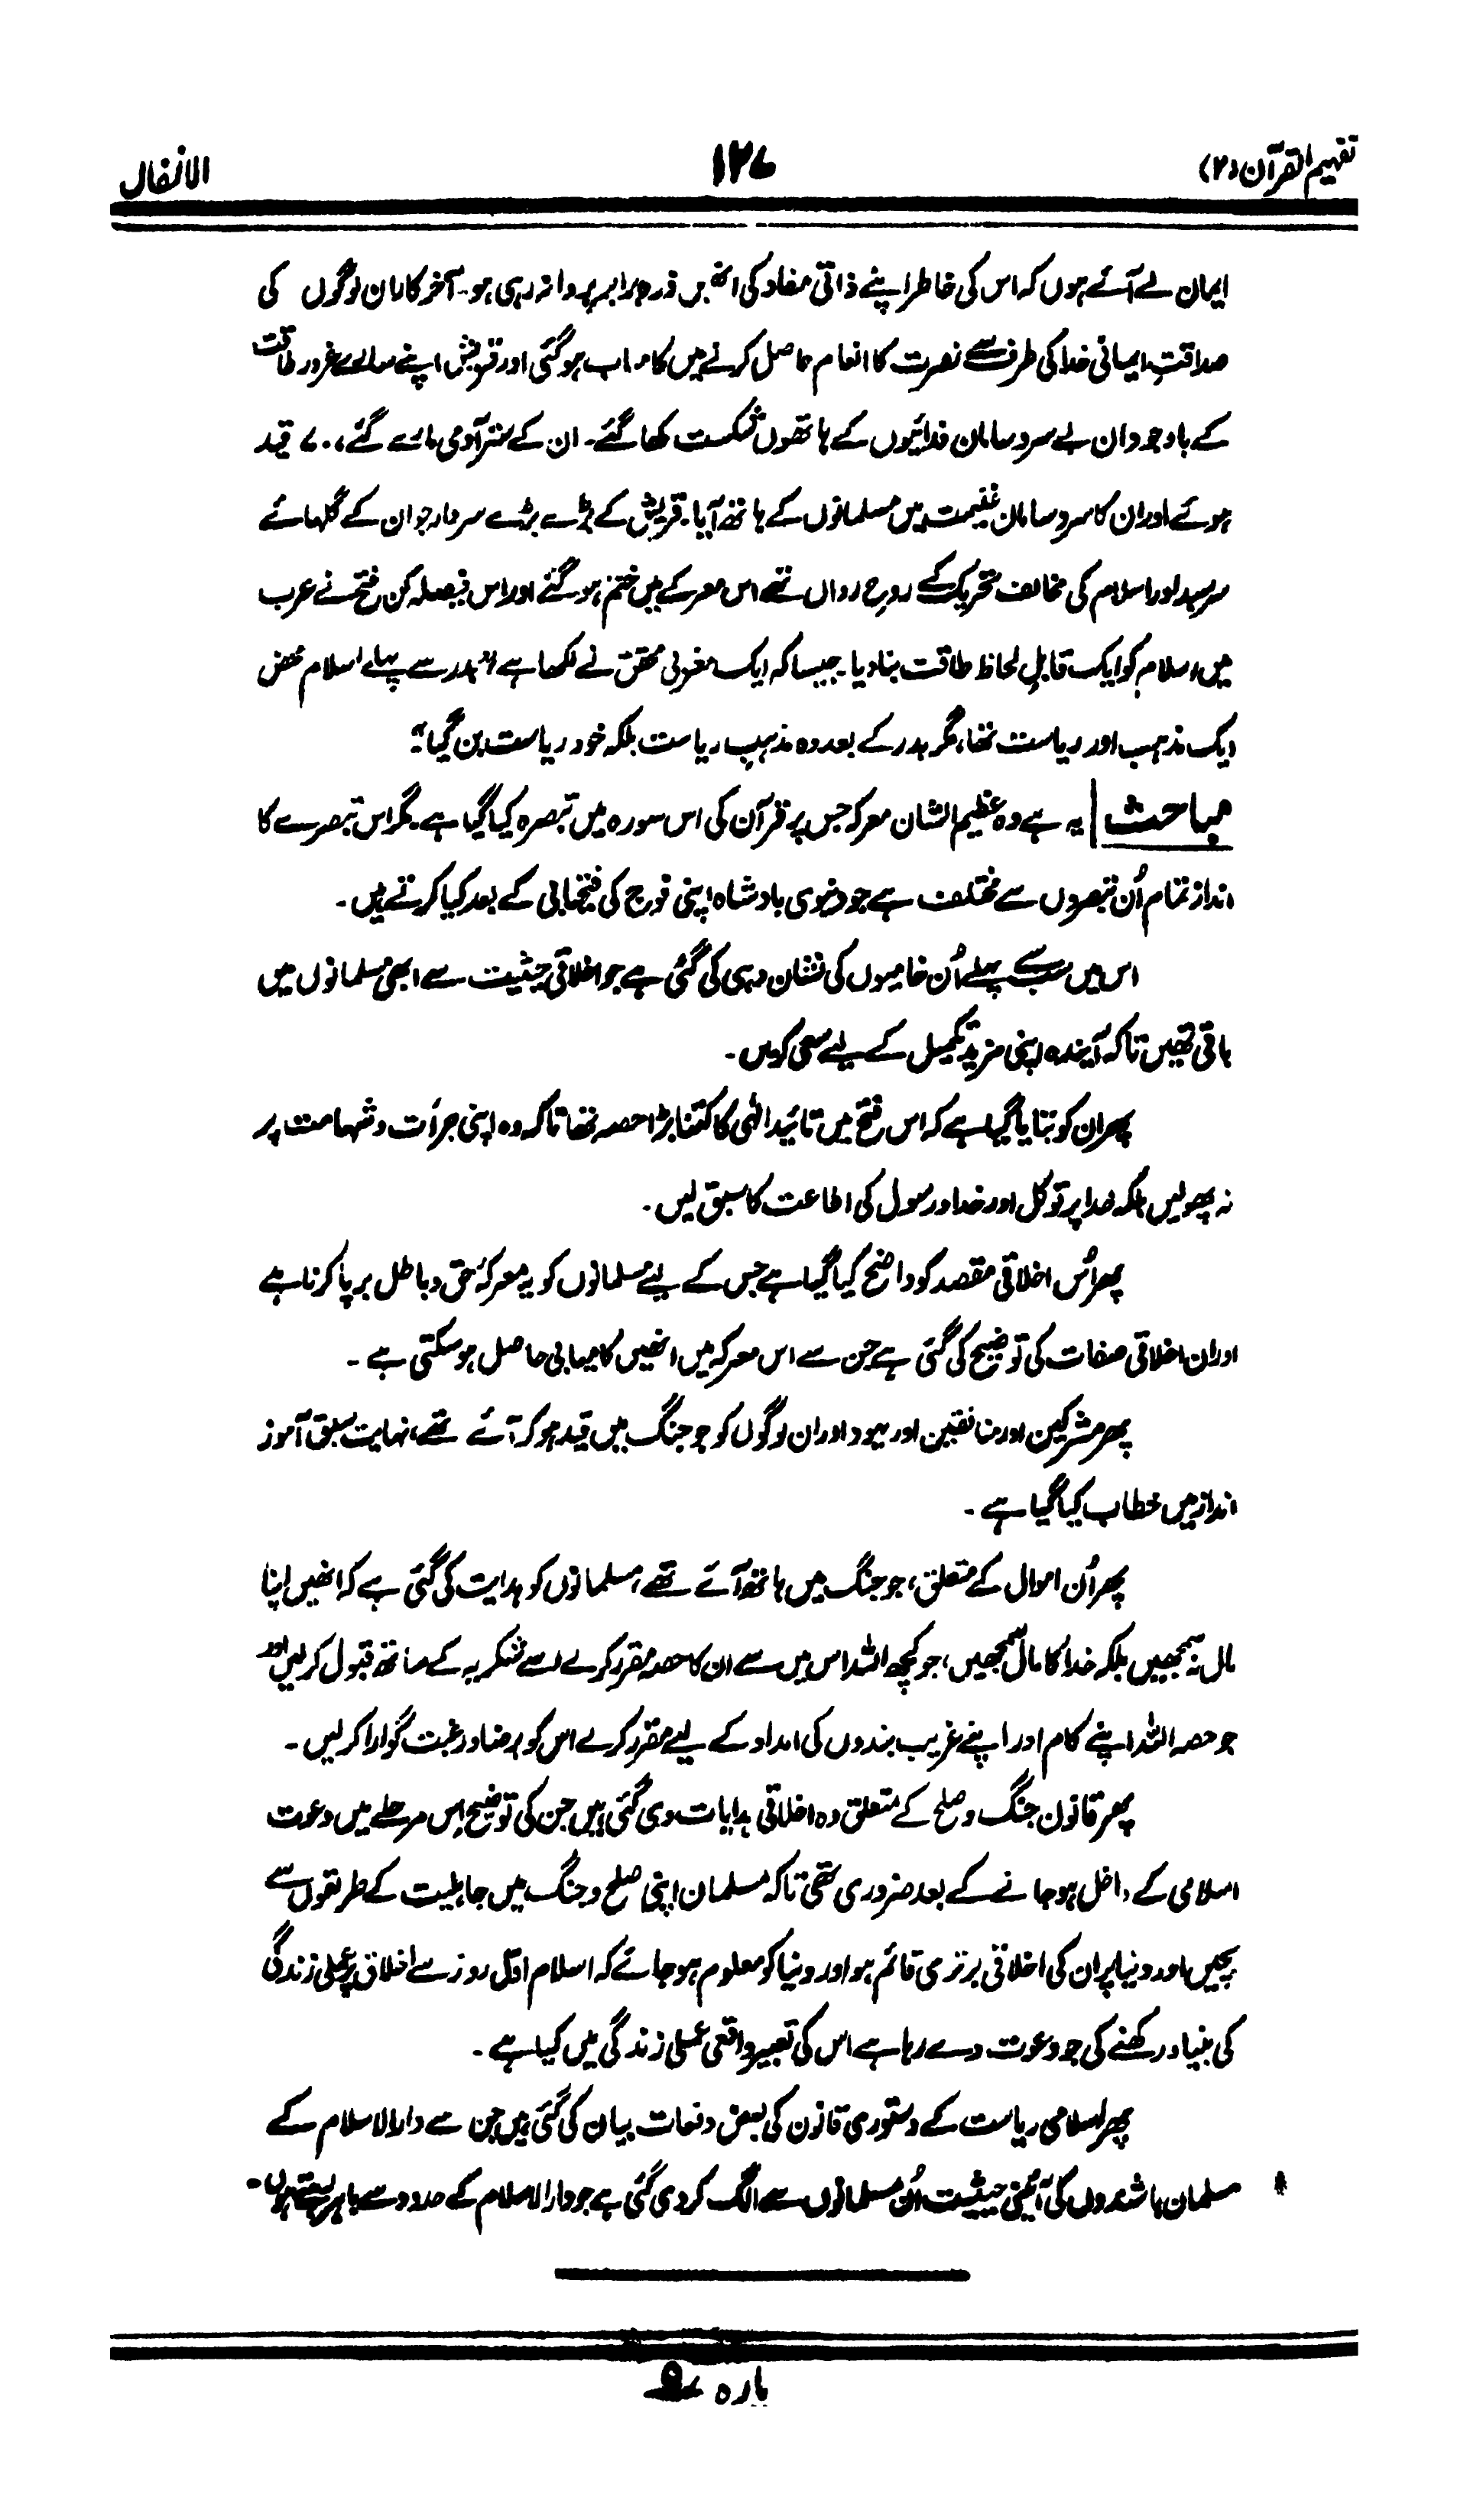 تفہیم القرآن (۲)
۱۲۷
الانفال
ایمان لے آئے ہوں کہ اس کی خاطر اپنے ذاتی مفاد کی انھیں ذرہ برابر پروا نہ رہی ہو۔ آخر کار ان لوگوں کی
صداقتِ ایمانی خدا کی طرف سے نصرت کا انعام حاصل کرنے میں کامیاب ہو گئی اور قریش اپنے سارے غرور طاقت
کے باوجود ان بے سروسامان فدائیوں کے ہاتھوں شکست کھا گئے۔ ان کے ستر آدمی مارے گئے، ۷۰ قید
ہوئے اور ان کا سروسامان غنیمت میں مسلمانوں کے ہاتھ آیا۔ قریش کے بڑے بڑے سردار جو ان کے گلہائے
سرسبد اور اسلام کی مخالف تحریک کے روحِ رواں تھے اس معرکے میں ختم ہو گئے اور اس فیصلہ کن فتح نے عرب
میں اسلام کو ایک قابلِ لحاظ طاقت بنا دیا۔ جیسا کہ ایک مغربی محقق نے لکھا ہے، "بدر سے پہلے اسلام محض
ایک مذہب اور ریاست تھا، مگر بدر کے بعد وہ مذہبِ ریاست بلکہ خود ریاست بن گیا"۔
مباحث یہ ہے وہ عظیم الشان معرکہ جس پر قرآن کی اس سورہ میں تبصرہ کیا گیا ہے۔ مگر اس تبصرے کا
انداز تمام اُن تبصروں سے مختلف ہے جو دنیوی بادشاہ اپنی فوج کی فتحیابی کے بعد کیا کرتے ہیں۔
اس میں سب سے پہلے اُن خامیوں کی نشان دہی کی گئی ہے جو اخلاقی حیثیت سے ابھی مسلمانوں میں
باقی تھیں تاکہ آیندہ اپنی مزید تکمیل کے لیے سعی کریں۔
پھر ان کو بتایا گیا ہے کہ اس فتح میں تائید الٰہی کا کتنا بڑا حصہ تھا تاکہ وہ اپنی جرأت و شہامت پر
نہ پھولیں بلکہ خدا پر توکل اور خدا و رسول کی اطاعت کا سبق لیں۔
پھر اُس اخلاقی مقصد کو واضح کیا گیا ہے جس کے لیے مسلمانوں کو یہ معرکۂ حق و باطل برپا کرنا ہے
اور ان اخلاقی صفات کی توضیح کی گئی ہے جن سے اس معرکہ میں انھیں کامیابی حاصل ہو سکتی ہے۔
پھر مشرکین اور منافقین اور یہود اور ان لوگوں کو جو جنگ میں قید ہو کر آئے تھے، نہایت سبق آموز
انداز میں خطاب کیا گیا ہے۔
پھر اُن اموال کے متعلق، جو جنگ میں ہاتھ آئے تھے، مسلمانوں کو ہدایت کی گئی ہے کہ انھیں اپنا
مال نہ سمجھیں بلکہ خدا کا مال سمجھیں، جو کچھ اللہ اس میں سے ان کا حصہ مقرر کرے اسے شکریہ کے ساتھ قبول کر لیں اور
جو حصہ اللہ اپنے کام اور اپنے غریب بندوں کی امداد کے لیے مقرر کرے اس کو برضا و رغبت گوارا کر لیں۔
پھر قانون جنگ و صلح کے متعلق وہ اخلاقی ہدایات دی گئی ہیں جن کی توضیح اِس مرحلے میں دعوت
اسلامی کے داخل ہو جانے کے بعد ضروری تھی تاکہ مسلمان اپنی صلح و جنگ میں جاہلیت کے طریقوں سے
بچیں اور دنیا پر ان کی اخلاقی برتری قائم ہو اور دنیا کو معلوم ہو جائے کہ اسلام اوّل روز سے اخلاق پر عملی زندگی
کی بنیاد رکھنے کی جو دعوت دے رہا ہے اس کی تعبیر واقعی عملی زندگی میں کیا ہے۔
پھر اسلامی ریاست کے دستوری قانون کی بعض دفعات بیان کی گئی ہیں جن سے دارالاسلام کے
مسلمان باشندوں کی آئینی حیثیت اُن مسلمانوں سے الگ کر دی گئی ہے جو دارالاسلام کے حدود سے باہر رہتے ہوں۔
پارہ ۹